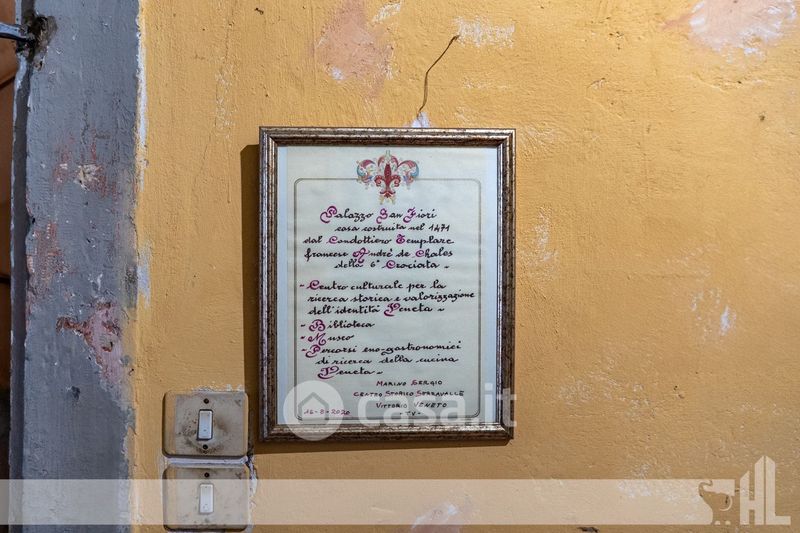 Palazzo San Fiori
casa costruita nel 1471
dal Condottiero Templare
francese Andrè de Chales
della 6° Crociata
- Centro culturale per la
ricerca storica e valorizzazione
dell'identità Veneta
- Biblioteca
- Museo
- Percorsi eno-gastronomici
di ricerca della cucina
Veneta
MARINO SERGIO
CENTRO STORICO SERRAVALLE
16-8-2020 VITTORIO VENETO
- TV -
Casa.it
HL